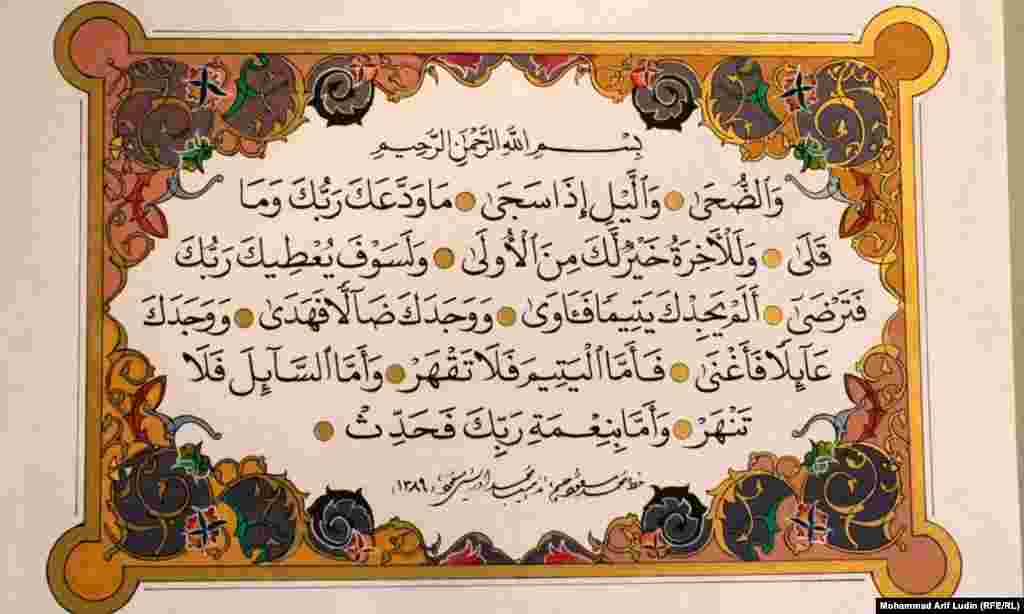 بِسْمِ اللَّهِ الرَّحْمَٰنِ الرَّحِيمِ
وَالضُّحَىٰ وَاللَّيْلِ إِذَا سَجَىٰ مَا وَدَّعَكَ رَبُّكَ وَمَا
قَلَىٰ وَلَلْآخِرَةُ خَيْرٌ لَكَ مِنَ الْأُولَىٰ وَلَسَوْفَ يُعْطِيكَ رَبُّكَ
فَتَرْضَىٰ أَلَمْ يَجِدْكَ يَتِيمًا فَآوَىٰ وَوَجَدَكَ ضَآلًّا فَهَدَىٰ وَوَجَدَكَ
عَآئِلًا فَأَغْنَىٰ فَأَمَّا الْيَتِيمَ فَلَا تَقْهَرْ وَأَمَّا السَّآئِلَ فَلَا
تَنْهَرْ وَأَمَّا بِنِعْمَةِ رَبِّكَ فَحَدِّثْ
خط محمد ١٣٨٩
Mohammad Arif Ludin (RFE/RL)